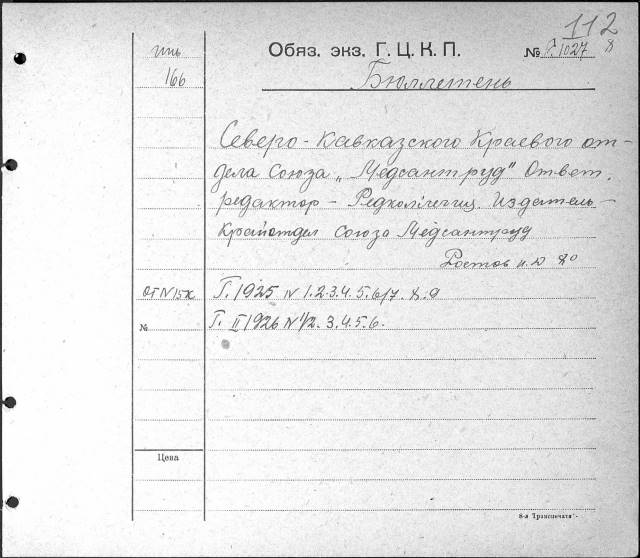 112
Обяз. экз. Г. Ц. К. П.
№ Г.1027 8
166
Бюллетень
Северо-Кавказского Краевого от-
дела Союза „Медсантруд" Ответ.
редактор - Редколлегия. Издатель -
Крайотдел Союза Медсантруд
Ростов н.Д 8°
Г. 1925 № 1.2.3.4.5.6/7.8.9
№
Г. II 1926 № 1/2.3.4.5.6.
Цена
8-я Транспечать